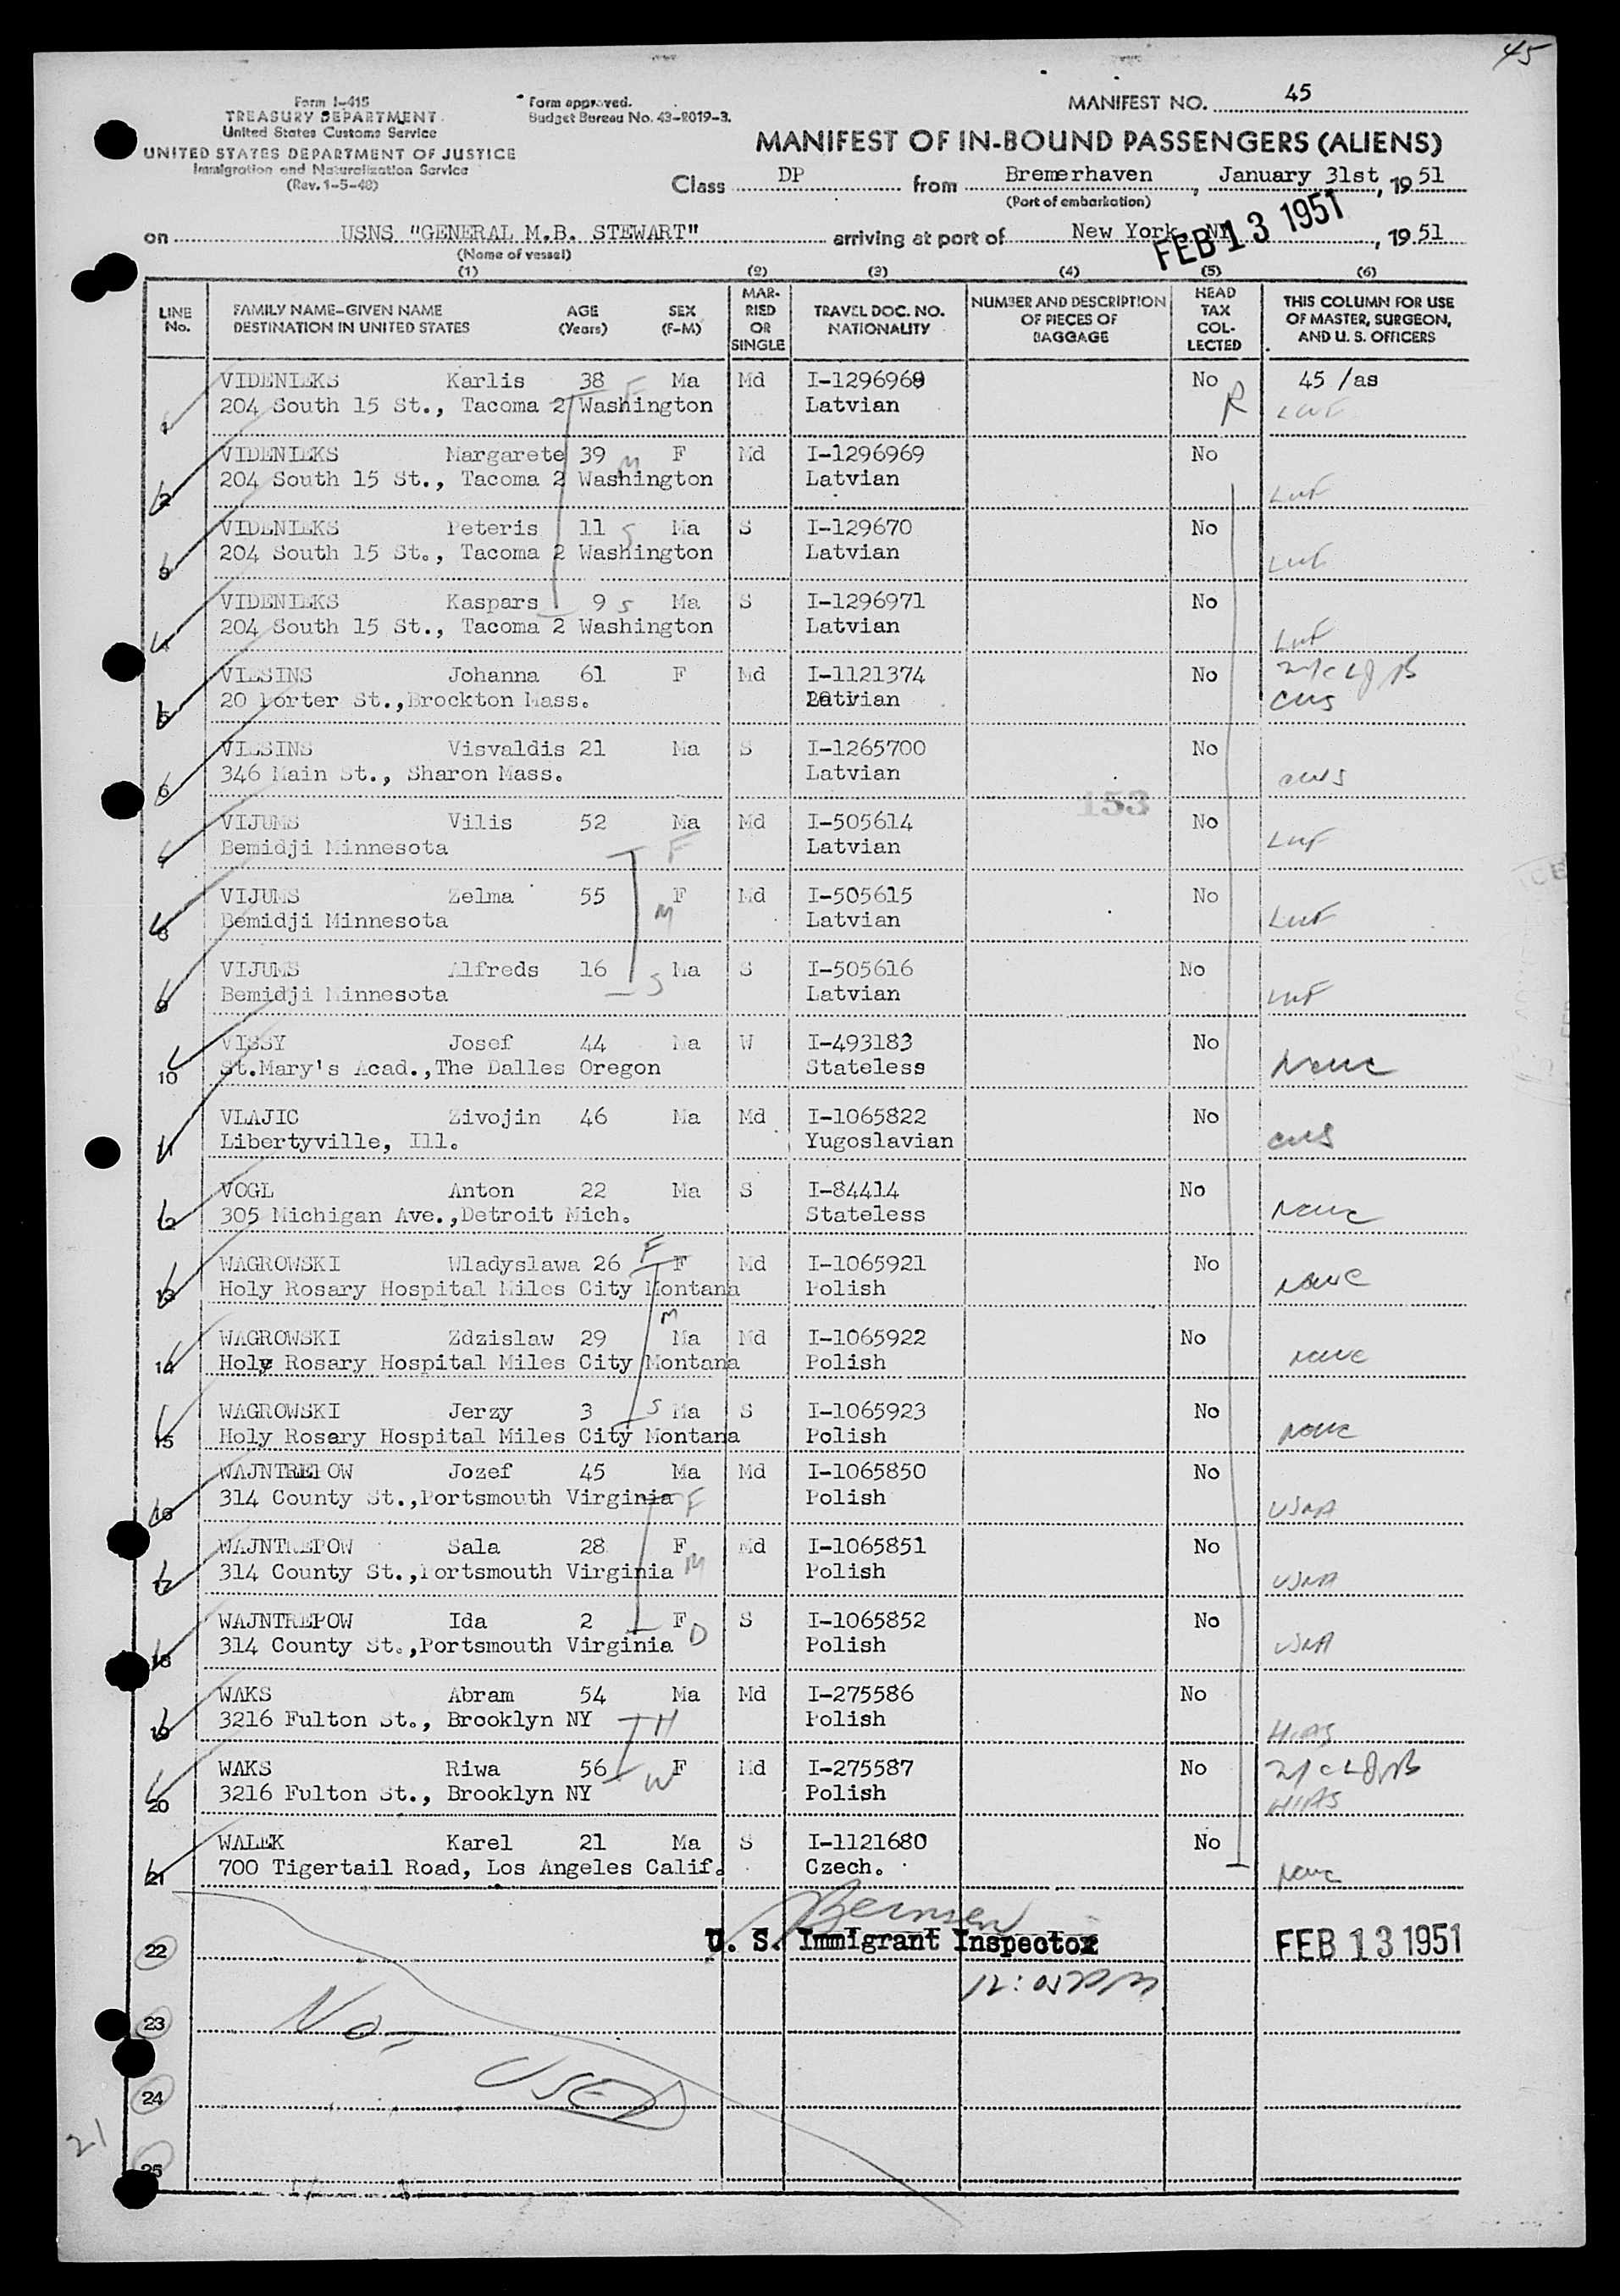 45
Form I-415
TREASURY DEPARTMENT
United States Customs Service
UNITED STATES DEPARTMENT OF JUSTICE
Immigration and Naturalization Service
(Rev. 1-5-48)
Form approved.
Budget Bureau No. 43-R019-3.
MANIFEST NO. 45
MANIFEST OF IN-BOUND PASSENGERS (ALIENS)
Class DP from Bremerhaven, January 31st, 19 51
(Port of embarkation)
on USNS "GENERAL M.B. STEWART" arriving at port of New York, NY, 19 51
FEB 13 1951
(Name of vessel)
(1) (2) (3) (4) (5) (6)
LINE No. FAMILY NAME-GIVEN NAME DESTINATION IN UNITED STATES AGE (Years) SEX (F-M) MARRIED OR SINGLE TRAVEL DOC. NO. NATIONALITY NUMBER AND DESCRIPTION OF PIECES OF BAGGAGE HEAD TAX COLLECTED THIS COLUMN FOR USE OF MASTER, SURGEON, AND U. S. OFFICERS
1 VIDENIEKS Karlis 38 F Ma Md I-1296968 No R 45 /as
204 South 15 St., Tacoma 2 Washington Latvian LWF
2 VIDENIEKS Margarete 39 M F Md I-1296969 No
204 South 15 St., Tacoma 2 Washington Latvian LWF
3 VIDENIEKS Peteris 11 S Ma S I-129670 No
204 South 15 St., Tacoma 2 Washington Latvian LWF
4 VIDENIEKS Kaspars 9 S Ma S I-1296971 No
204 South 15 St., Tacoma 2 Washington Latvian LWF
5 VILSINS Johanna 61 F Md I-1121374 No
20 Porter St.,Brockton Mass. Latvian CWS
6 VILSINS Visvaldis 21 Ma S I-1265700 No
346 Main St., Sharon Mass. Latvian CWS
153
7 VIJUMS Vilis 52 Ma Md I-505614 No
Bemidji Minnesota F Latvian LWF
8 VIJUMS Zelma 55 F Md I-505615 No
Bemidji Minnesota M Latvian LWF
9 VIJUMS Alfreds 16 Ma S I-505616 No
Bemidji Minnesota S Latvian LWF
10 VISSY Josef 44 Ma W I-493183 No
St.Mary's Acad.,The Dalles Oregon Stateless NCWC
11 VLAJIC Zivojin 46 Ma Md I-1065822 No
Libertyville, Ill. Yugoslavian CWS
12 VOGL Anton 22 Ma S I-84414 No
305 Michigan Ave.,Detroit Mich. Stateless NCWC
13 WAGROWSKI Wladyslawa 26 F F Md I-1065921 No
Holy Rosary Hospital Miles City Montana Polish NCWC
14 WAGROWSKI Zdzislaw 29 M Ma Md I-1065922 No
Holy Rosary Hospital Miles City Montana Polish NCWC
15 WAGROWSKI Jerzy 3 S Ma S I-1065923 No
Holy Rosary Hospital Miles City Montana Polish NCWC
16 WAJNTREPOW Jozef 45 Ma Md I-1065850 No
314 County St.,Portsmouth Virginia F Polish USNA
17 WAJNTREPOW Sala 28 F Md I-1065851 No
314 County St.,Portsmouth Virginia M Polish USNA
18 WAJNTREPOW Ida 2 F S I-1065852 No
314 County St.,Portsmouth Virginia D Polish USNA
19 WAKS Abram 54 Ma Md I-275586 No
3216 Fulton St., Brooklyn NY H Polish HIAS
20 WAKS Riwa 56 F Md I-275587 No
3216 Fulton St., Brooklyn NY W Polish HIAS
21 WALEK Karel 21 Ma S I-1121680 No
700 Tigertail Road, Los Angeles Calif. Czech. NCWC
22 U. S. Immigrant Inspector FEB 13 1951
23 No-
24 USED
21
25